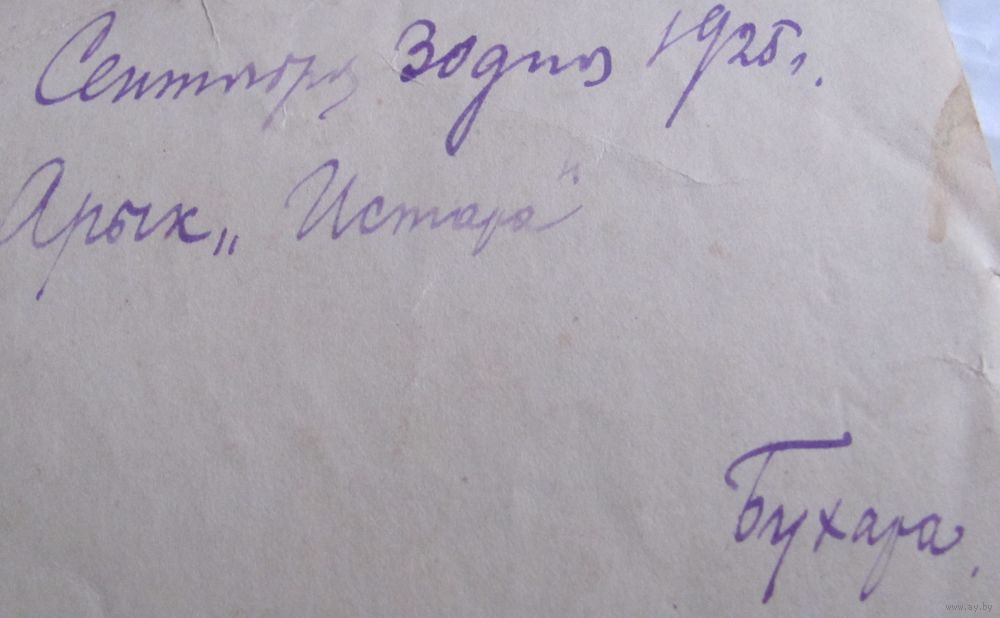 Сентября 30 дня 1925 г.
Арык „Истара"
Бухара.
www.ay.by